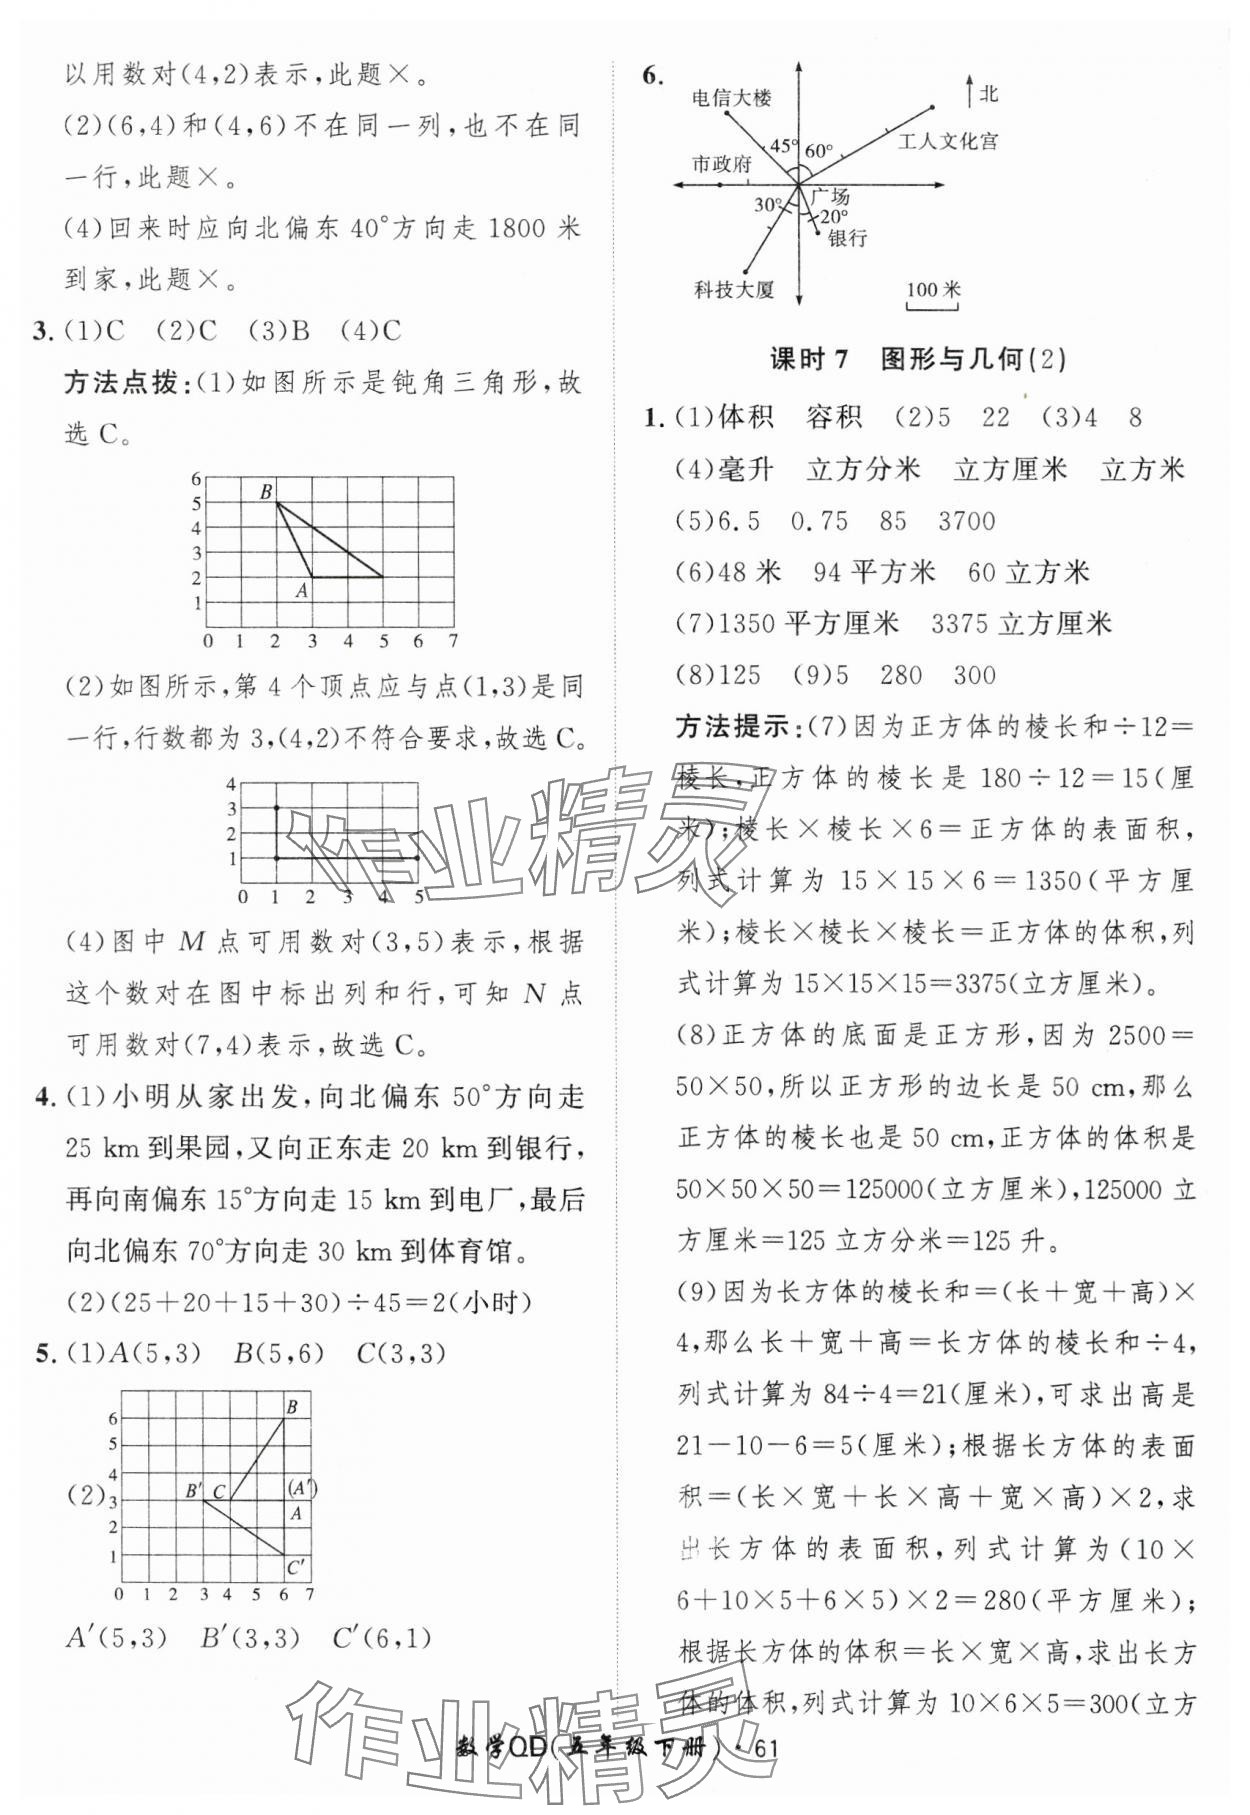 以用数对(4,2)表示,此题×。
(2)(6,4)和(4,6)不在同一列,也不在同
一行,此题×。
(4)回来时应向北偏东40°方向走1800米
到家,此题×。
3. (1)C (2)C (3)B (4)C
方法点拨:(1)如图所示是钝角三角形,故
选C。
6
5
4
3
2
1
B
A
0 1 2 3 4 5 6 7
(2)如图所示,第4个顶点应与点(1,3)是同
一行,行数都为3,(4,2)不符合要求,故选C。
4
3
2
1
0 1 2 3 4 5
(4)图中M点可用数对(3,5)表示,根据
这个数对在图中标出列和行,可知N点
可用数对(7,4)表示,故选C。
4. (1)小明从家出发,向北偏东50°方向走
25 km到果园,又向正东走20 km到银行,
再向南偏东15°方向走15 km到电厂,最后
向北偏东70°方向走30 km到体育馆。
(2)(25+20+15+30)÷45=2(小时)
5. (1)A(5,3) B(5,6) C(3,3)
(2)
6
5
4
3
2
1
B
B′ C (A′)
A
C′
0 1 2 3 4 5 6 7
A′(5,3) B′(3,3) C′(6,1)
6.
电信大楼
北
45° 60°
工人文化宫
市政府
广场
30° 20°
银行
科技大厦
100米
课时7 图形与几何(2)
1. (1)体积 容积 (2)5 22 (3)4 8
(4)毫升 立方分米 立方厘米 立方米
(5)6.5 0.75 85 3700
(6)48米 94平方米 60立方米
(7)1350平方厘米 3375立方厘米
(8)125 (9)5 280 300
方法提示:(7)因为正方体的棱长和÷12=
棱长,正方体的棱长是180÷12=15(厘
米);棱长×棱长×6=正方体的表面积,
列式计算为15×15×6=1350(平方厘
米);棱长×棱长×棱长=正方体的体积,列
式计算为15×15×15=3375(立方厘米)。
(8)正方体的底面是正方形,因为2500=
50×50,所以正方形的边长是50 cm,那么
正方体的棱长也是50 cm,正方体的体积是
50×50×50=125000(立方厘米),125000立
方厘米=125立方分米=125升。
(9)因为长方体的棱长和=(长+宽+高)×
4,那么长+宽+高=长方体的棱长和÷4,
列式计算为84÷4=21(厘米),可求出高是
21-10-6=5(厘米);根据长方体的表面
积=(长×宽+长×高+宽×高)×2,求
出长方体的表面积,列式计算为(10×
6+10×5+6×5)×2=280(平方厘米);
根据长方体的体积=长×宽×高,求出长方
体的体积,列式计算为10×6×5=300(立方
数学QD(五年级下册)·61
作业精灵
作业精灵